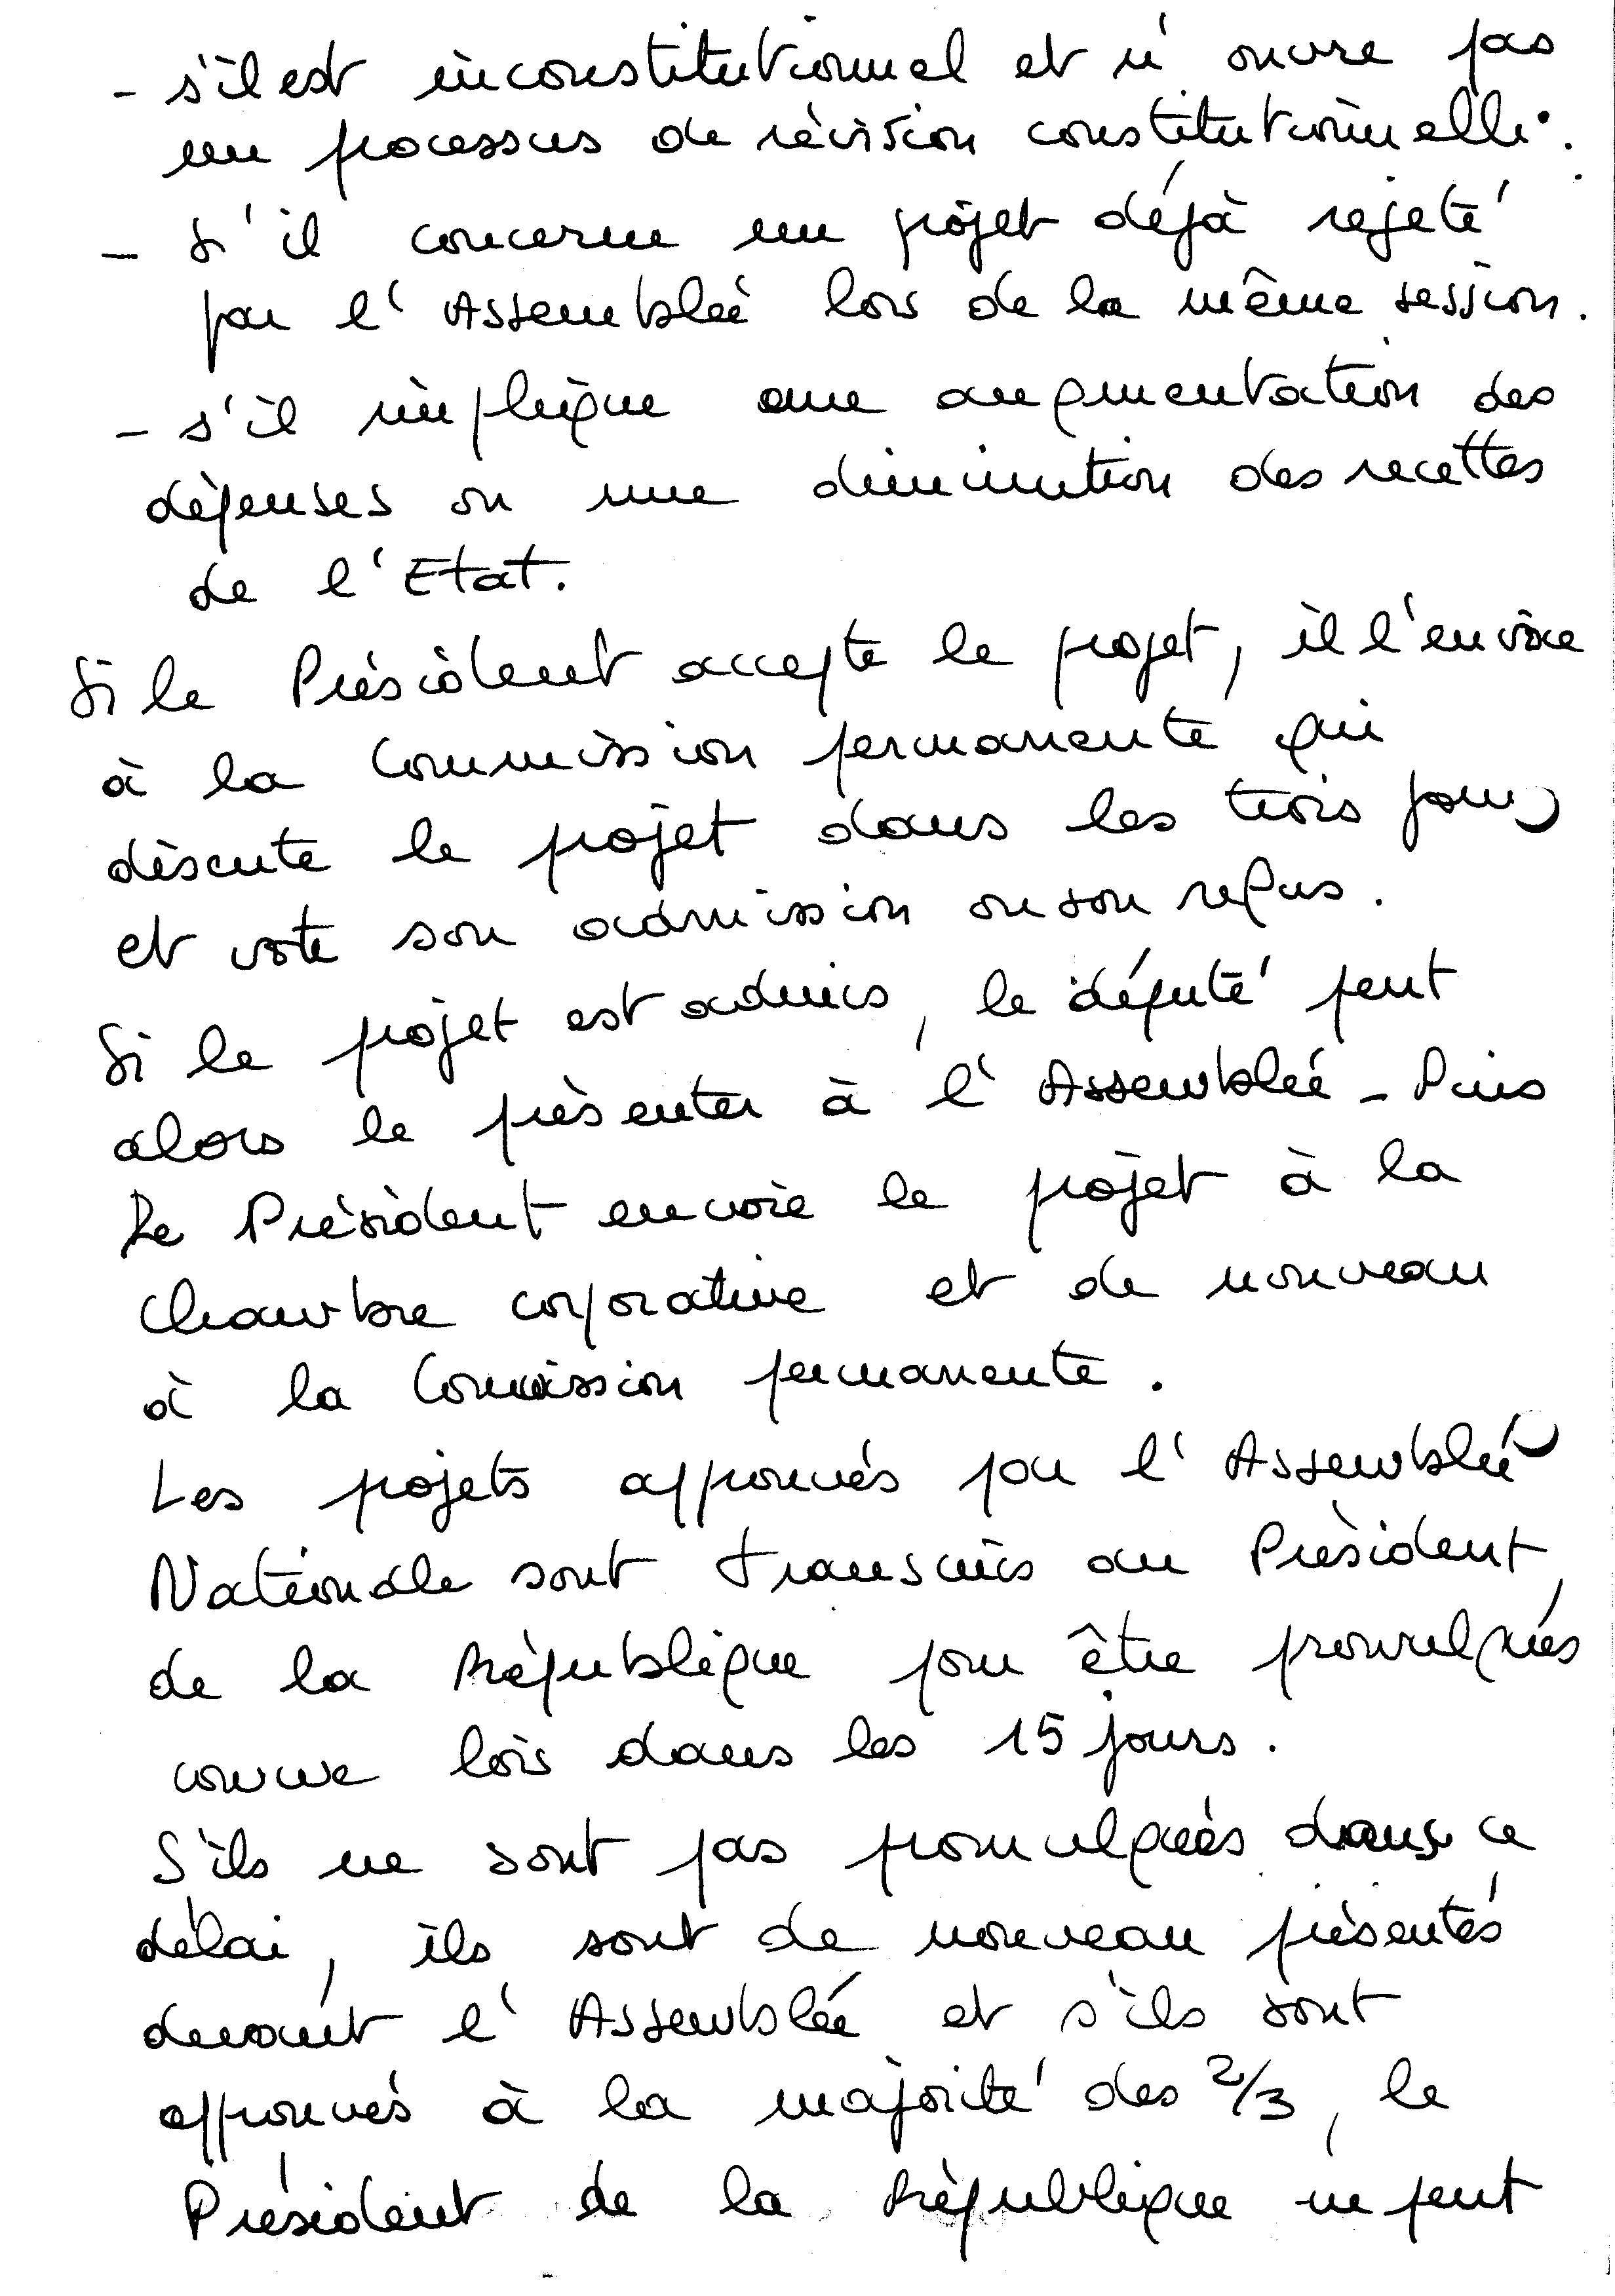 - s'il est inconstitutionnel et n'ouvre pas
un processus de révision constitutionnelle.
- s'il concerne un projet déjà rejeté
par l'Assemblée lors de la même session.
- s'il implique une augmentation des
dépenses ou une diminution des recettes
de l'Etat.
Si le Président accepte le projet, il l'envoie
à la Commission permanente qui
discute le projet dans les trois jours
et vote son admission ou son refus.
Si le projet est admis, le député peut
alors le présenter à l'Assemblée - Puis
Le Président envoie le projet à la
Chambre corporative et de nouveau
à la Commission permanente.
Les projets approuvés par l'Assemblée
Nationale sont transmis au Président
de la République pour être promulgués
comme lois dans les 15 jours.
S'ils ne sont pas promulgués dans ce
délai, ils sont de nouveau présentés
devant l'Assemblée et s'ils sont
approuvés à la majorité des 2/3, le
Président de la République ne peut